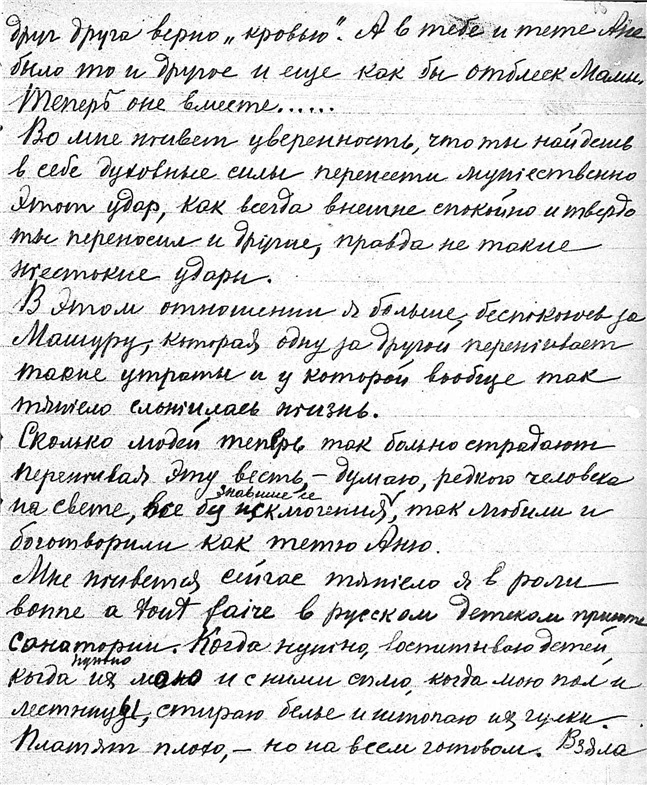 друг друга верно „кровью". А в тебе и тете Ане
было то и другое и еще как бы отблеск Мамы.
Теперь оне вместе......
Во мне живет уверенность, что ты найдешь
в себе духовные силы перенести мужественно
этот удар, как всегда внешне спокойно и твердо
ты переносил и другие, правда не такие
жестокие удары.
В этом отношении я больше беспокоюсь за
Машуру, которая одну за другой переживает
такие утраты и у которой вообще так
тяжело сложилась жизнь.
Сколько людей теперь так больно страдают
переживая эту весть, – думаю, редкого человека
на свете, все без исключения, знавшие ее так любили и
боготворили как тетю Аню.
Мне живется сейчас тяжело я в роли
bonne a tout faire в русском детском приюте
санатории. Когда нужно, воспитываю детей,
когда нужно их мою и с ними сплю, когда мою пол и
лестницы, стираю белье и штопаю их чулки.
Платят плохо, – но на всем готовом. Взяла